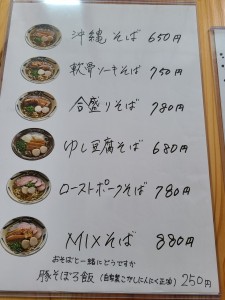 沖縄そば 650円
軟骨ソーキそば 750円
合盛りそば 780円
ゆし豆腐そば 680円
ローストポークそば 780円
MIXそば 880円
おそばと一緒にどうですか
豚そぼろ飯 (自家製こがしにんにく正油) 250円